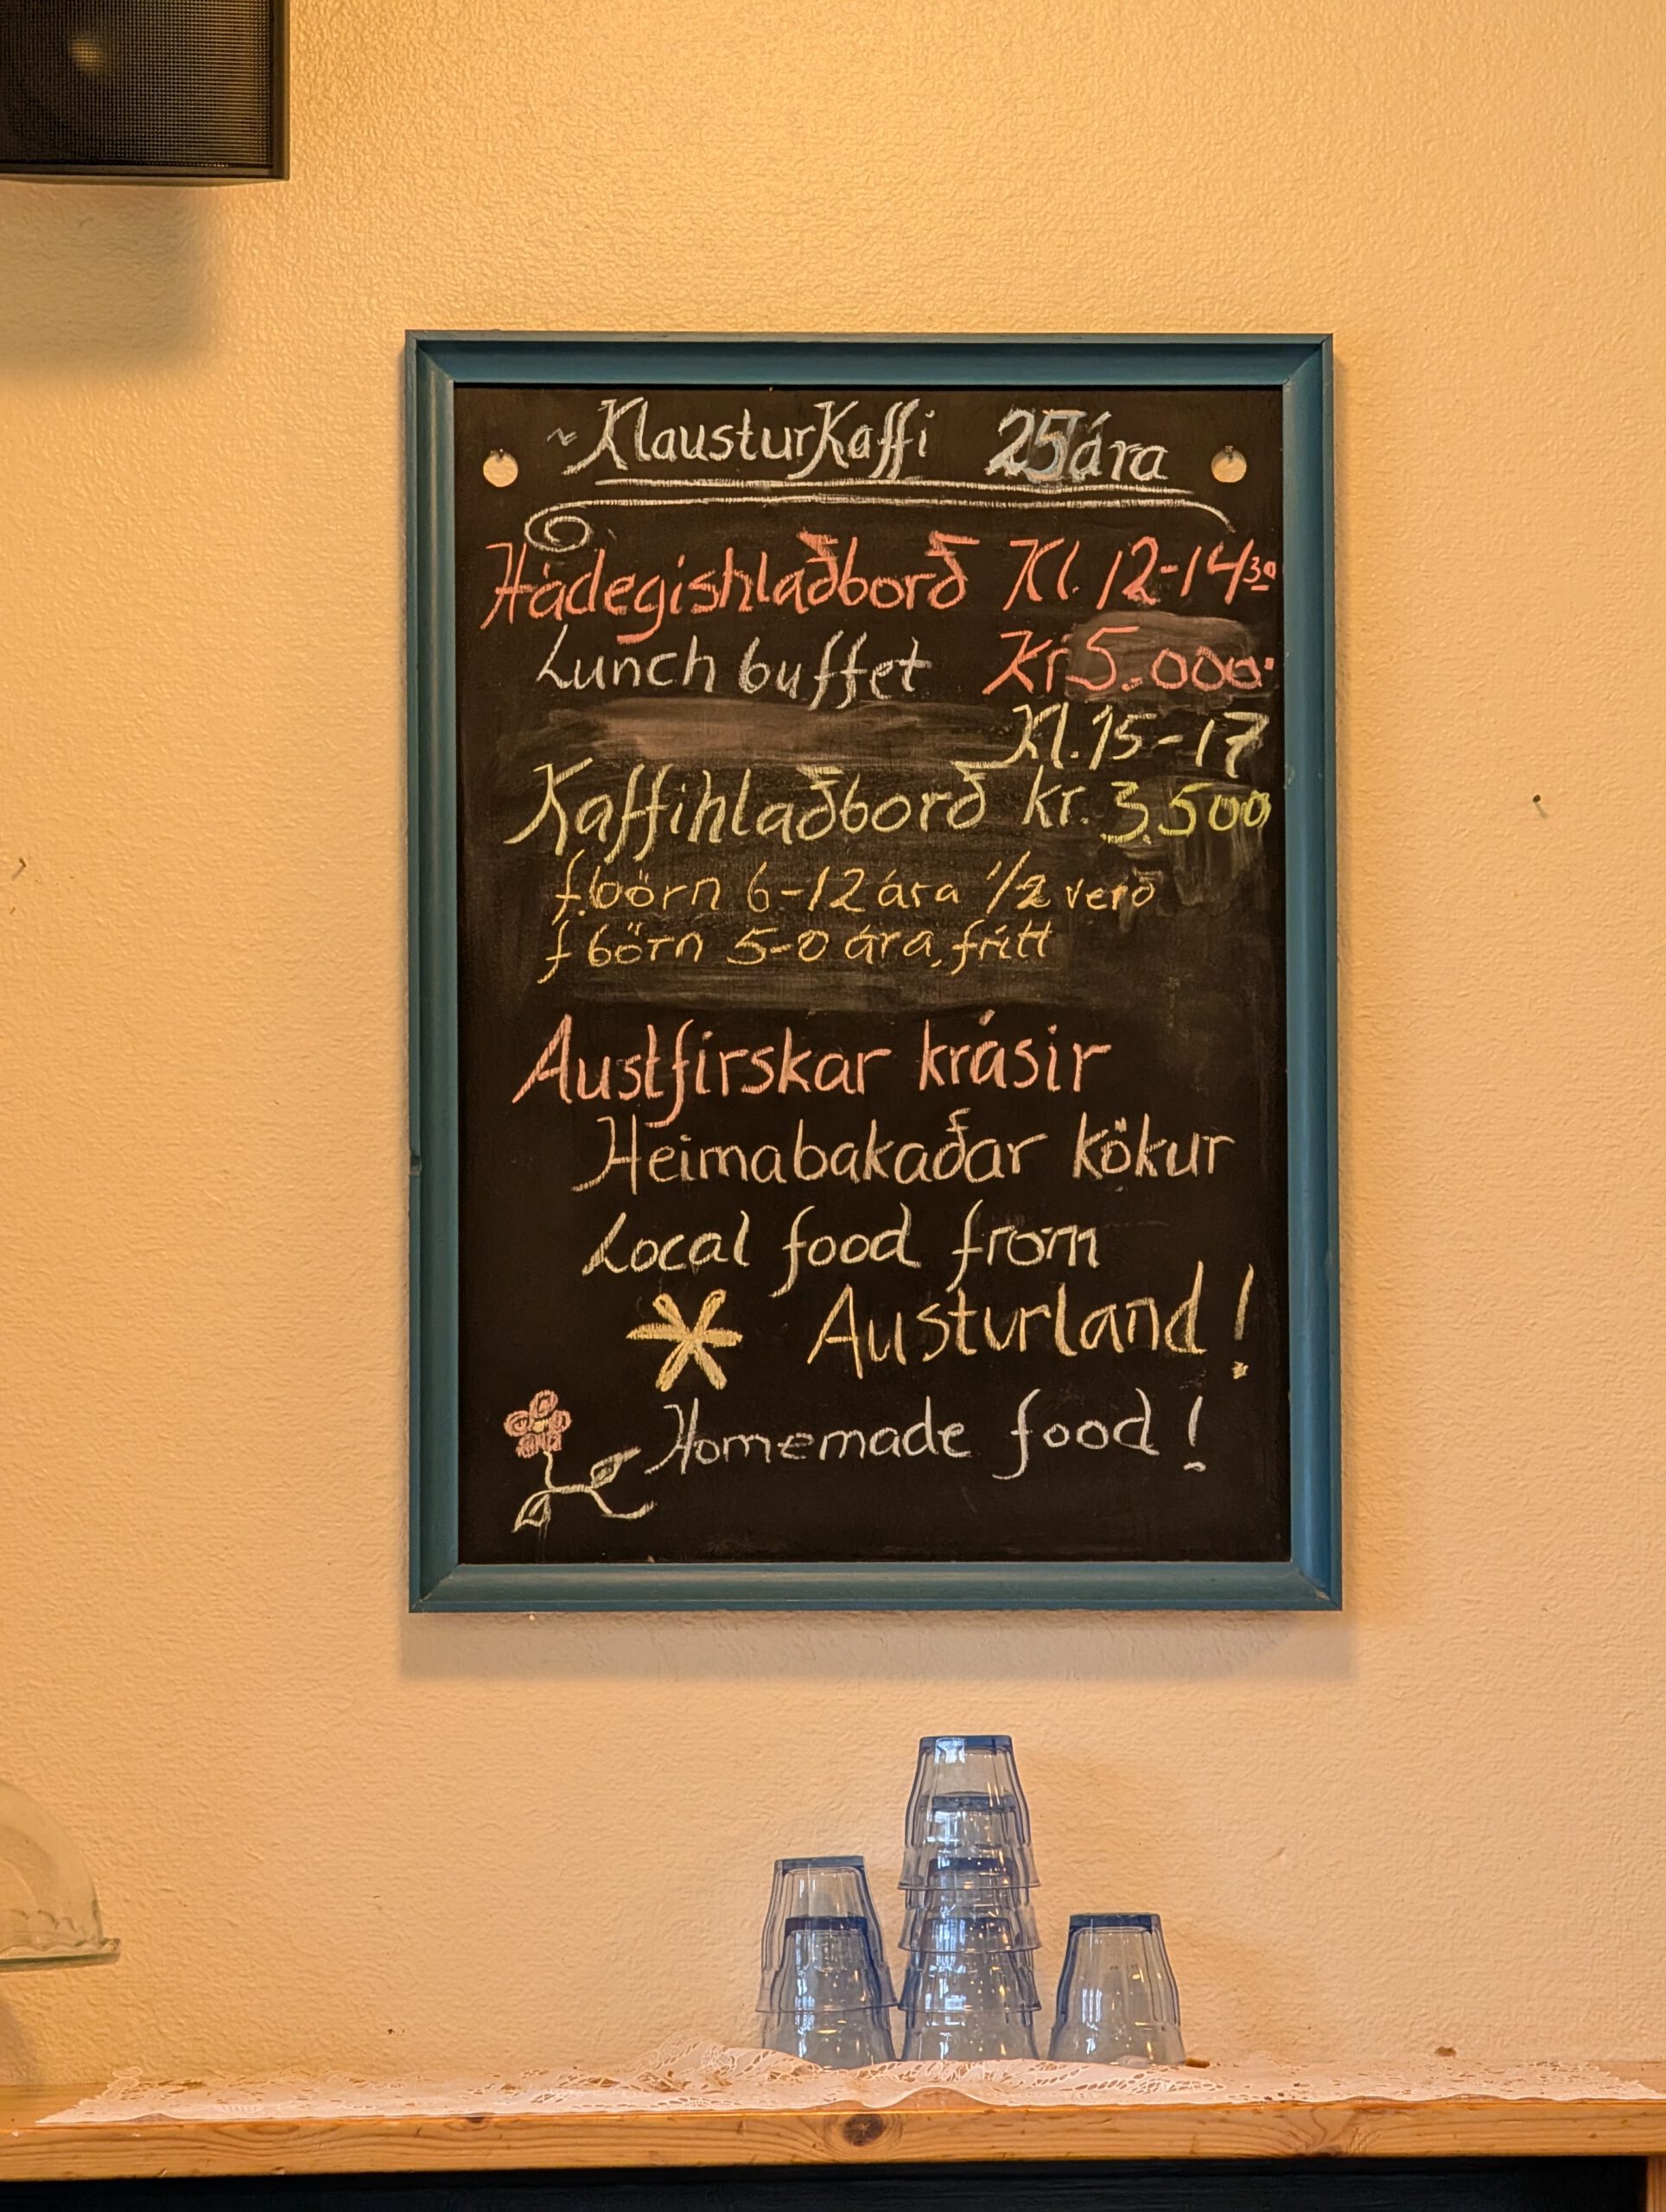 ~ Klausturkaffi 25 ára
Hádegishlaðborð Kl. 12-14³⁰
Lunch buffet Kr 5.000.
Kl. 15-17
Kaffihlaðborð kr. 3.500
f. börn 6-12 ára 1/2 verð
f börn 5-0 ára, frítt
Austfirskar krásir
Heimabakaðar kökur
Local food from
Austurland!
Homemade food!